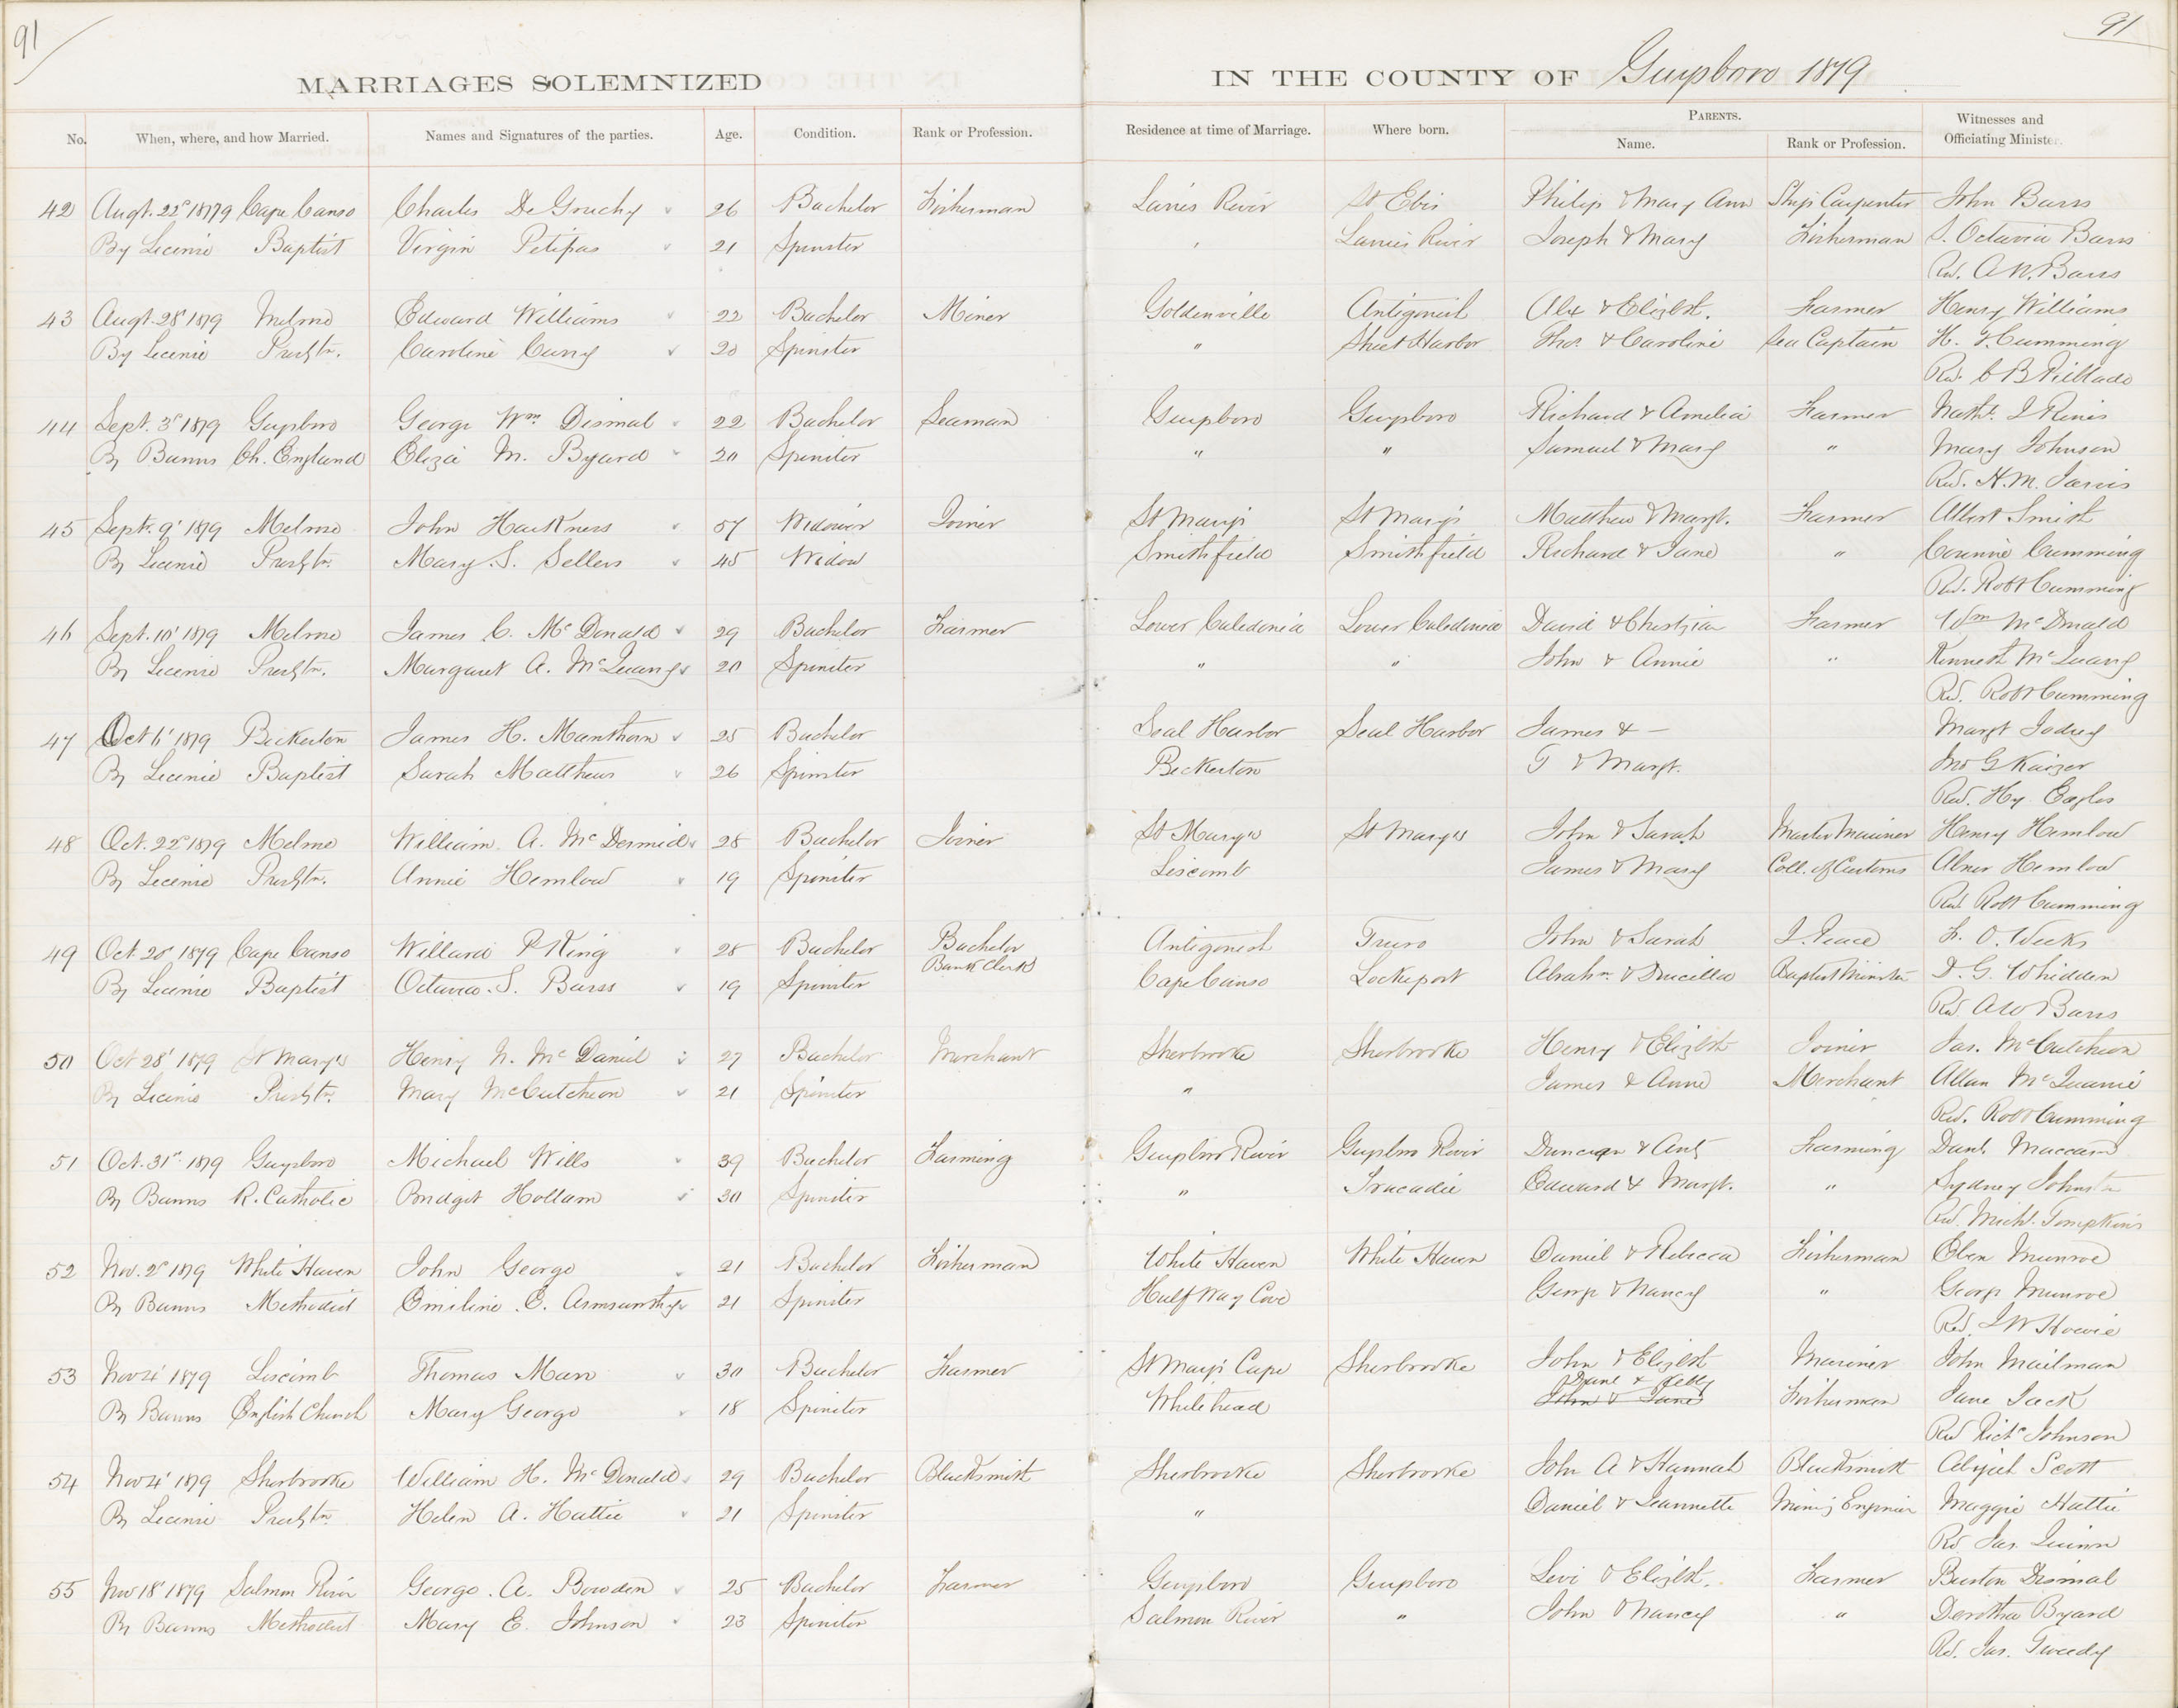 91
91
MARRIAGES SOLEMNIZED IN THE COUNTY OF Guysboro 1879
No. When, where, and how Married. Names and Signatures of the parties. Age. Condition. Rank or Profession. Residence at time of Marriage. Where born. PARENTS. Witnesses and
Name. Rank or Profession. Officiating Minister.
42 Augt. 22d 1879 Cape Canso Charles De Gruchy 26 Bachelor Fisherman Larries River Philip & Mary Ann Ship Carpenter John Barss
By License Baptist Virgin Petipas 21 Spinster Larries River Joseph & Mary Fisherman S. Octavia Barss
Rev. A. W. Barss
43 Augt. 28 1879 Melrose Edward Williams 22 Bachelor Miner Goldenville Antigonish Alex & Elizbth. Farmer Henry Williams
By License Presbtn. Caroline Curry 20 Spinster " Sheet Harbor Thos. & Caroline Sea Captain H. F. Cumming
Rev. C B Pitblado
44 Sept. 3d 1879 Guysboro George Wm. Dismal 22 Bachelor Seaman Guysboro Guysboro Richard & Amelia Farmer
By Banns Ch. England Eliza M. Byard 20 Spinster " " Samuel & Mary " Mary Johnson
Rev. H. M. Jarvis
45 Sept. 9' 1879 Melrose John Harkness 57 Widower Joiner St Mary's St Mary's Matthew & Margt. Farmer Albert Smith
By License Presbtn. Mary S. Sellers 45 Widow Smithfield Smithfield Richard & Jane " Connie Cumming
Rev. Robt Cumming
46 Sept. 10' 1879 Melrose James C. McDonald 29 Bachelor Farmer Lower Caledonia Lower Caledonia David & Christian Farmer Wm McDonald
By License Presbtn. Margaret A. McQuarry 20 Spinster " " John & Annie " Kenneth McQuarry
Rev. Robt Cumming
47 Oct 6' 1879 Beckerton James H. Manthorn 25 Bachelor Seal Harbor Seal Harbor James & — Margt Jodrey
By License Baptist Sarah Matthews 26 Spinster Beckerton T & Margt. Jno G Kaizer
Rev. Hy. Eagles
48 Oct. 22d 1879 Melrose William A. McDermid 28 Bachelor Joiner St Mary's St Mary's John & Sarah Master Mariner Henry Hemlow
By License Presbtn. Annie Hemlow 19 Spinster Liscomb James & Mary Coll. of Customs Abner Hemlow
Rev. Robt Cumming
49 Oct 20 1879 Cape Canso Willard P King 28 Bachelor Bachelor Antigonish Truro John & Sarah J. Peace F. O. Weeks
Bank Clerk
By License Baptist Octavia S. Barss 19 Spinster Cape Canso Lockeport Abrahm. & Drucilla Baptist Minister D. G. Whidden
Rev. A W Barss
50 Oct 28' 1879 St Mary's Henry N. McDaniel 27 Bachelor Merchant Sherbrooke Sherbrooke Henry & Elizbth Joiner Jas. McCutcheon
By License Presbtn. Mary McCutcheon 21 Spinster " James & Anne Merchant Allan McQuarrie
Rev. Robt Cumming
51 Oct. 31st 1879 Guysboro Michael Wills 39 Bachelor Farming Guysboro River Guysboro River Duncan & Farming Danl. Maccard
By Banns R. Catholic Bridget Hollam 30 Spinster " Tracadie Edward & Margt. " Sydney Johnston
Rev. Michl. Tompkins
52 Nov. 2d 1879 White Haven John George 21 Bachelor Fisherman White Haven White Haven Daniel & Rebecca Fisherman Eben Munroe
By Banns Methodist Emiline E. Armsworthy 21 Spinster Half Way Cove George & Nancy " George Munroe
Rev. J W Howie
53 Nov 4' 1879 Liscomb Thomas Man 30 Bachelor Farmer St Mary's Cape Sherbrooke John & Elizbth Mariner John Mailman
Danl & Letty
By Banns English Church Mary George 18 Spinster Whitehead John & Jane Fisherman Jane Jack
Rev Richd Johnson
54 Nov 4' 1879 Sherbrooke William H. McDonald 29 Bachelor Blacksmith Sherbrooke Sherbrooke John A & Hannah Blacksmith Abijah Scott
By License Presbtn. Helen A. Hattie 21 Spinster " Daniel & Jeannette Ming Engineer Maggie Hattie
Rev. Jas. Quinn
55 Nov 18' 1879 Salmon River George A. Bowden 25 Bachelor Farmer Guysboro Guysboro Levi & Elizbth. Farmer Burton Dismal
By Banns Methodist Mary E. Johnson 23 Spinster Salmon River " John & Nancy " Dorothea Byard
Rev. Jas. Tweedy